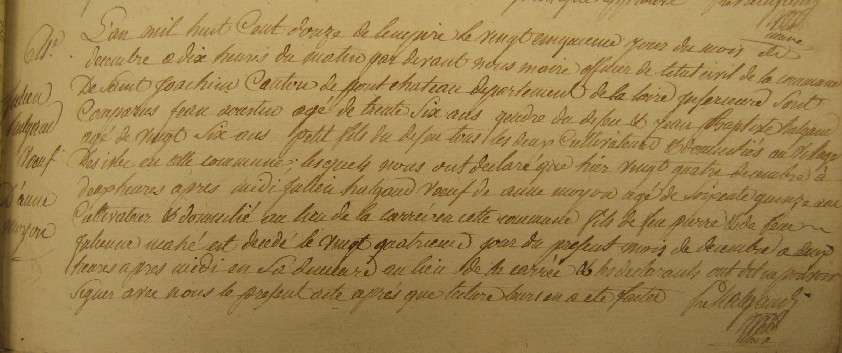 Nº
Julien
halgand
Veuf
D'anne
moyon
L'an mil huit Cent douze de l'empire le vingt cinquieme jour du mois de
decembre a dix heures du matin par devant nous maire officier de l'etat civil de la commune
De Saint Joachim Canton de pont chateau departement de la loire inferieure Sont
Comparus jean agé de trente Six ans gendre du defun & jean Baptiste halgand
agé de vingt Six ans petit fils du defun tous les deux Cultivateurs & domiciliés au vilage
en cette commune, lesquels nous ont declaré que hier vingt quatre decembre à
deux heures après midi julien halgand veuf de anne moyon agé de Soixante quinze ans
Cultivateur & domicilié au lieu de la carrée en cette commune fils de feu pierre & de feue
julienne mahé est decedé le vingt quatrieme jour du present mois de decembre a deux
heures apres midi en Sa demeure au lieu de la carrée & les declarants ont dit ne pas savoir
Signer avec nous le present acte après que lecture leur en a eté faite